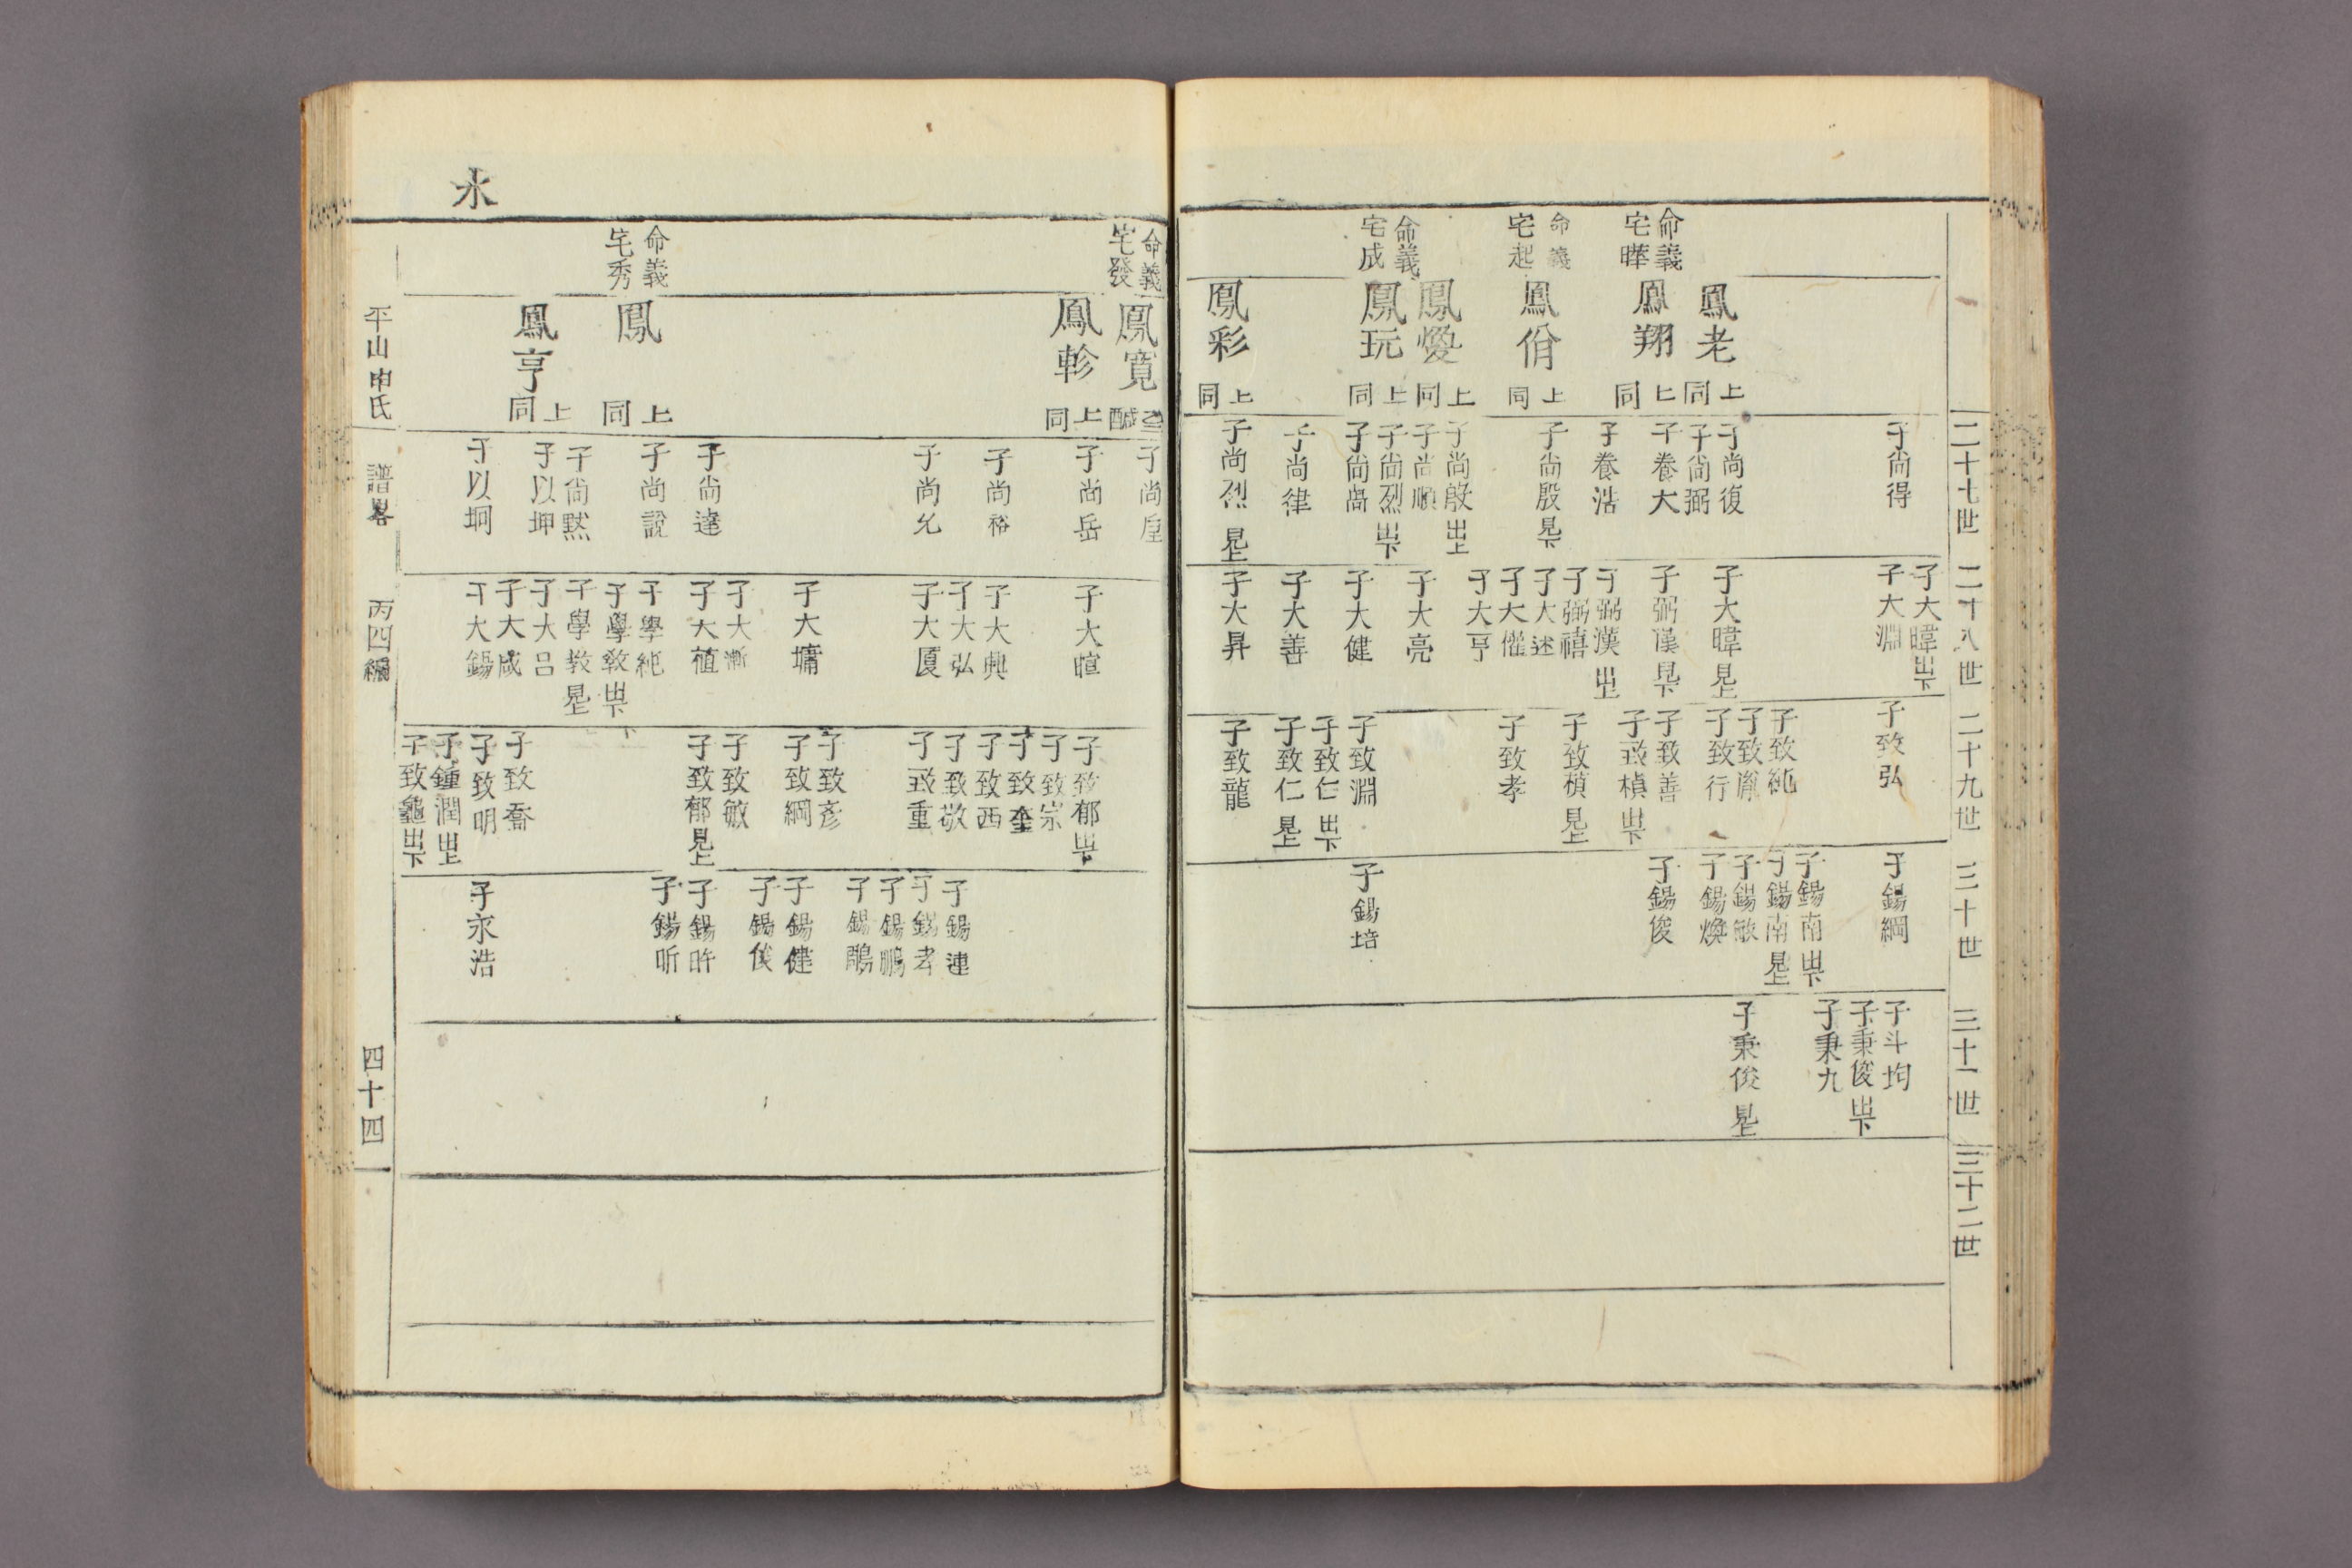 二十七世
二十八世
二十九世
三十世
三十一世
三十二世
命義
宅曄
命義
宅起
命義
宅成
鳳老
上同
鳳翔
上同
鳳佾
上同
鳳燮
上同
鳳玩
上同
鳳彩
上同
子尚得
子尚復
子尚弼
子養大
子養浩
子尚殷見下
子尚殷出上
子尚順
子尚烈出下
子尚卨
子尚律
子尚烈見上
子大暐出下
子大淵
子大暐見上
子弼漢見下
子弼漢出上
子弼禧
子大述
子大儺
子大亨
子大亮
子大健
子大善
子大昇
子致弘
子致純
子致胤
子致行
子致善
子致楨出下
子致楨見上
子致孝
子致淵
子致仁出下
子致仁見上
子致龍
子錫綱
子錫南出下
子錫南見上
子錫敏
子錫煥
子錫俊
子錫培
子斗均
子秉俊出下
子秉九
子秉俊見上
永
命義
宅發
命義
宅秀
鳳寬
鳳軫
上同
鳳
上同
鳳亨
上同
子尚垕
子尚岳
子尚裕
子尚允
子尚達
子尚說
子尚黙
子以坤
子以坰
子大暄
子大興
子大弘
子大廈
子大墉
子大漸
子大植
子學純
子學敎出下
子學敎見上
子大呂
子大咸
子大錫
子致郁出下
子致崇
子致奎
子致西
子致敬
子致重
子致彥
子致綱
子致敏
子致郁見上
子致喬
子致明
子鍾潤出上
子致龜出下
子錫連
子錫孝
子錫鵬
子錫鵰
子錫健
子錫俟
子錫昨
子錫昕
子永浩
平山申氏
譜畧
丙四編
四十四